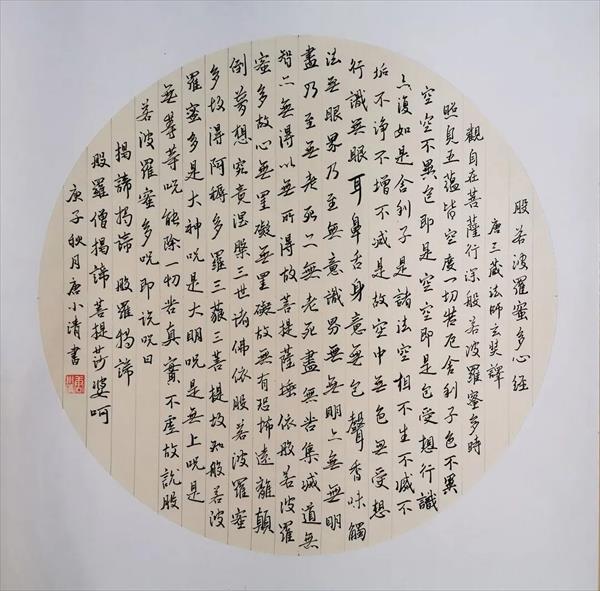 般若波羅蜜多心經
唐三藏法師玄奘譯
觀自在菩薩行深般若波羅蜜多時
照見五蘊皆空度一切苦厄舍利子色不異
空空不異色即是空空即是色受想行識
亦復如是舍利子是諸法空相不生不滅不
垢不淨不增不減是故空中無色無受想
行識無眼耳鼻舌身意無色聲香味觸
法無眼界乃至無意識界無無明亦無無明
盡乃至無老死亦無老死盡無苦集滅道無
智亦無得以無所得故菩提薩埵依般若波羅
蜜多故心無罣礙無罣礙故無有恐怖遠離顛
倒夢想究竟涅槃三世諸佛依般若波羅蜜
多故得阿耨多羅三藐三菩提故知般若波
羅蜜多是大神咒是大明咒是無上咒是
無等等咒能除一切苦真實不虛故說般
若波羅蜜多咒即說咒曰
揭諦揭諦 般羅揭諦
般羅僧揭諦菩提莎婆呵
庚子秋月唐小清書